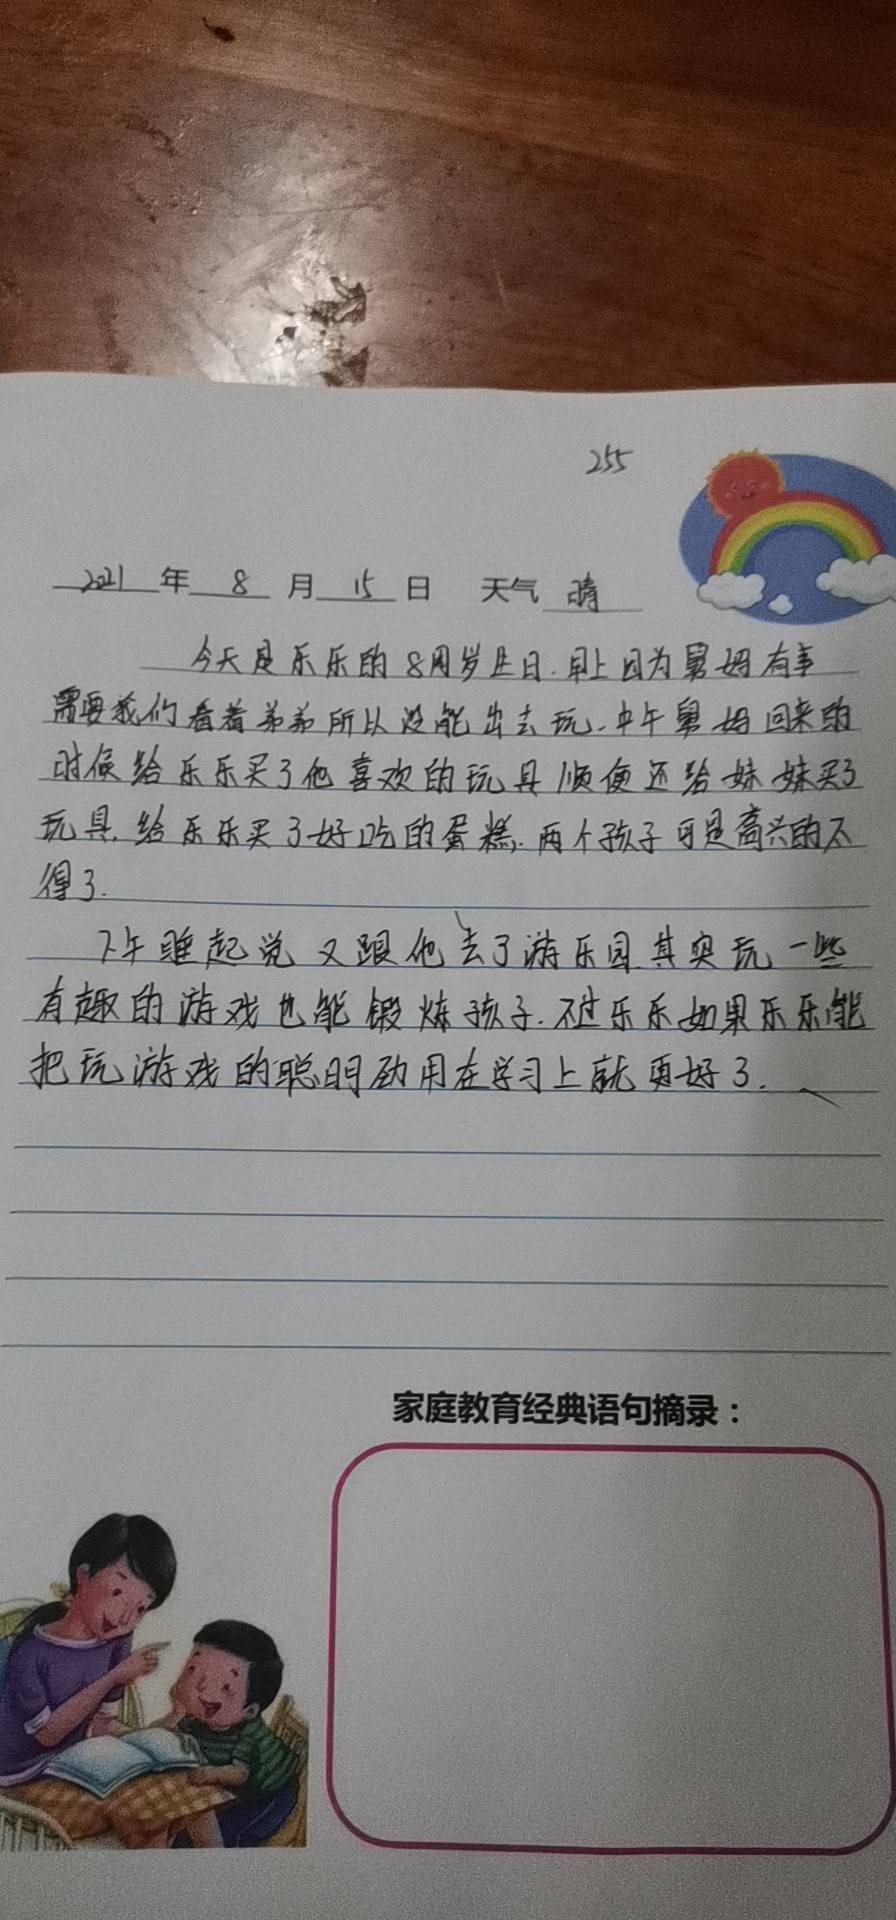 255
2021年8月15日 天气 晴
今天是乐乐的8周岁生日.早上因为舅妈有事
需要我们看着弟弟所以没能出去玩.中午舅妈回来的
时候给乐乐买了他喜欢的玩具顺便还给妹妹买了
玩具.给乐乐买了好吃的蛋糕.两个孩子可是高兴的不
得了.
下午睡起觉又跟他去了游乐园.其实玩一些
有趣的游戏也能锻炼孩子.不过乐乐如果乐乐能
把玩游戏的聪明劲用在学习上就更好了.
家庭教育经典语句摘录：